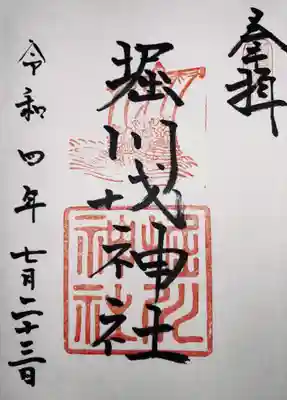 奉拝
堀川戎神社
令和四年七月二十三日
堀川
神社